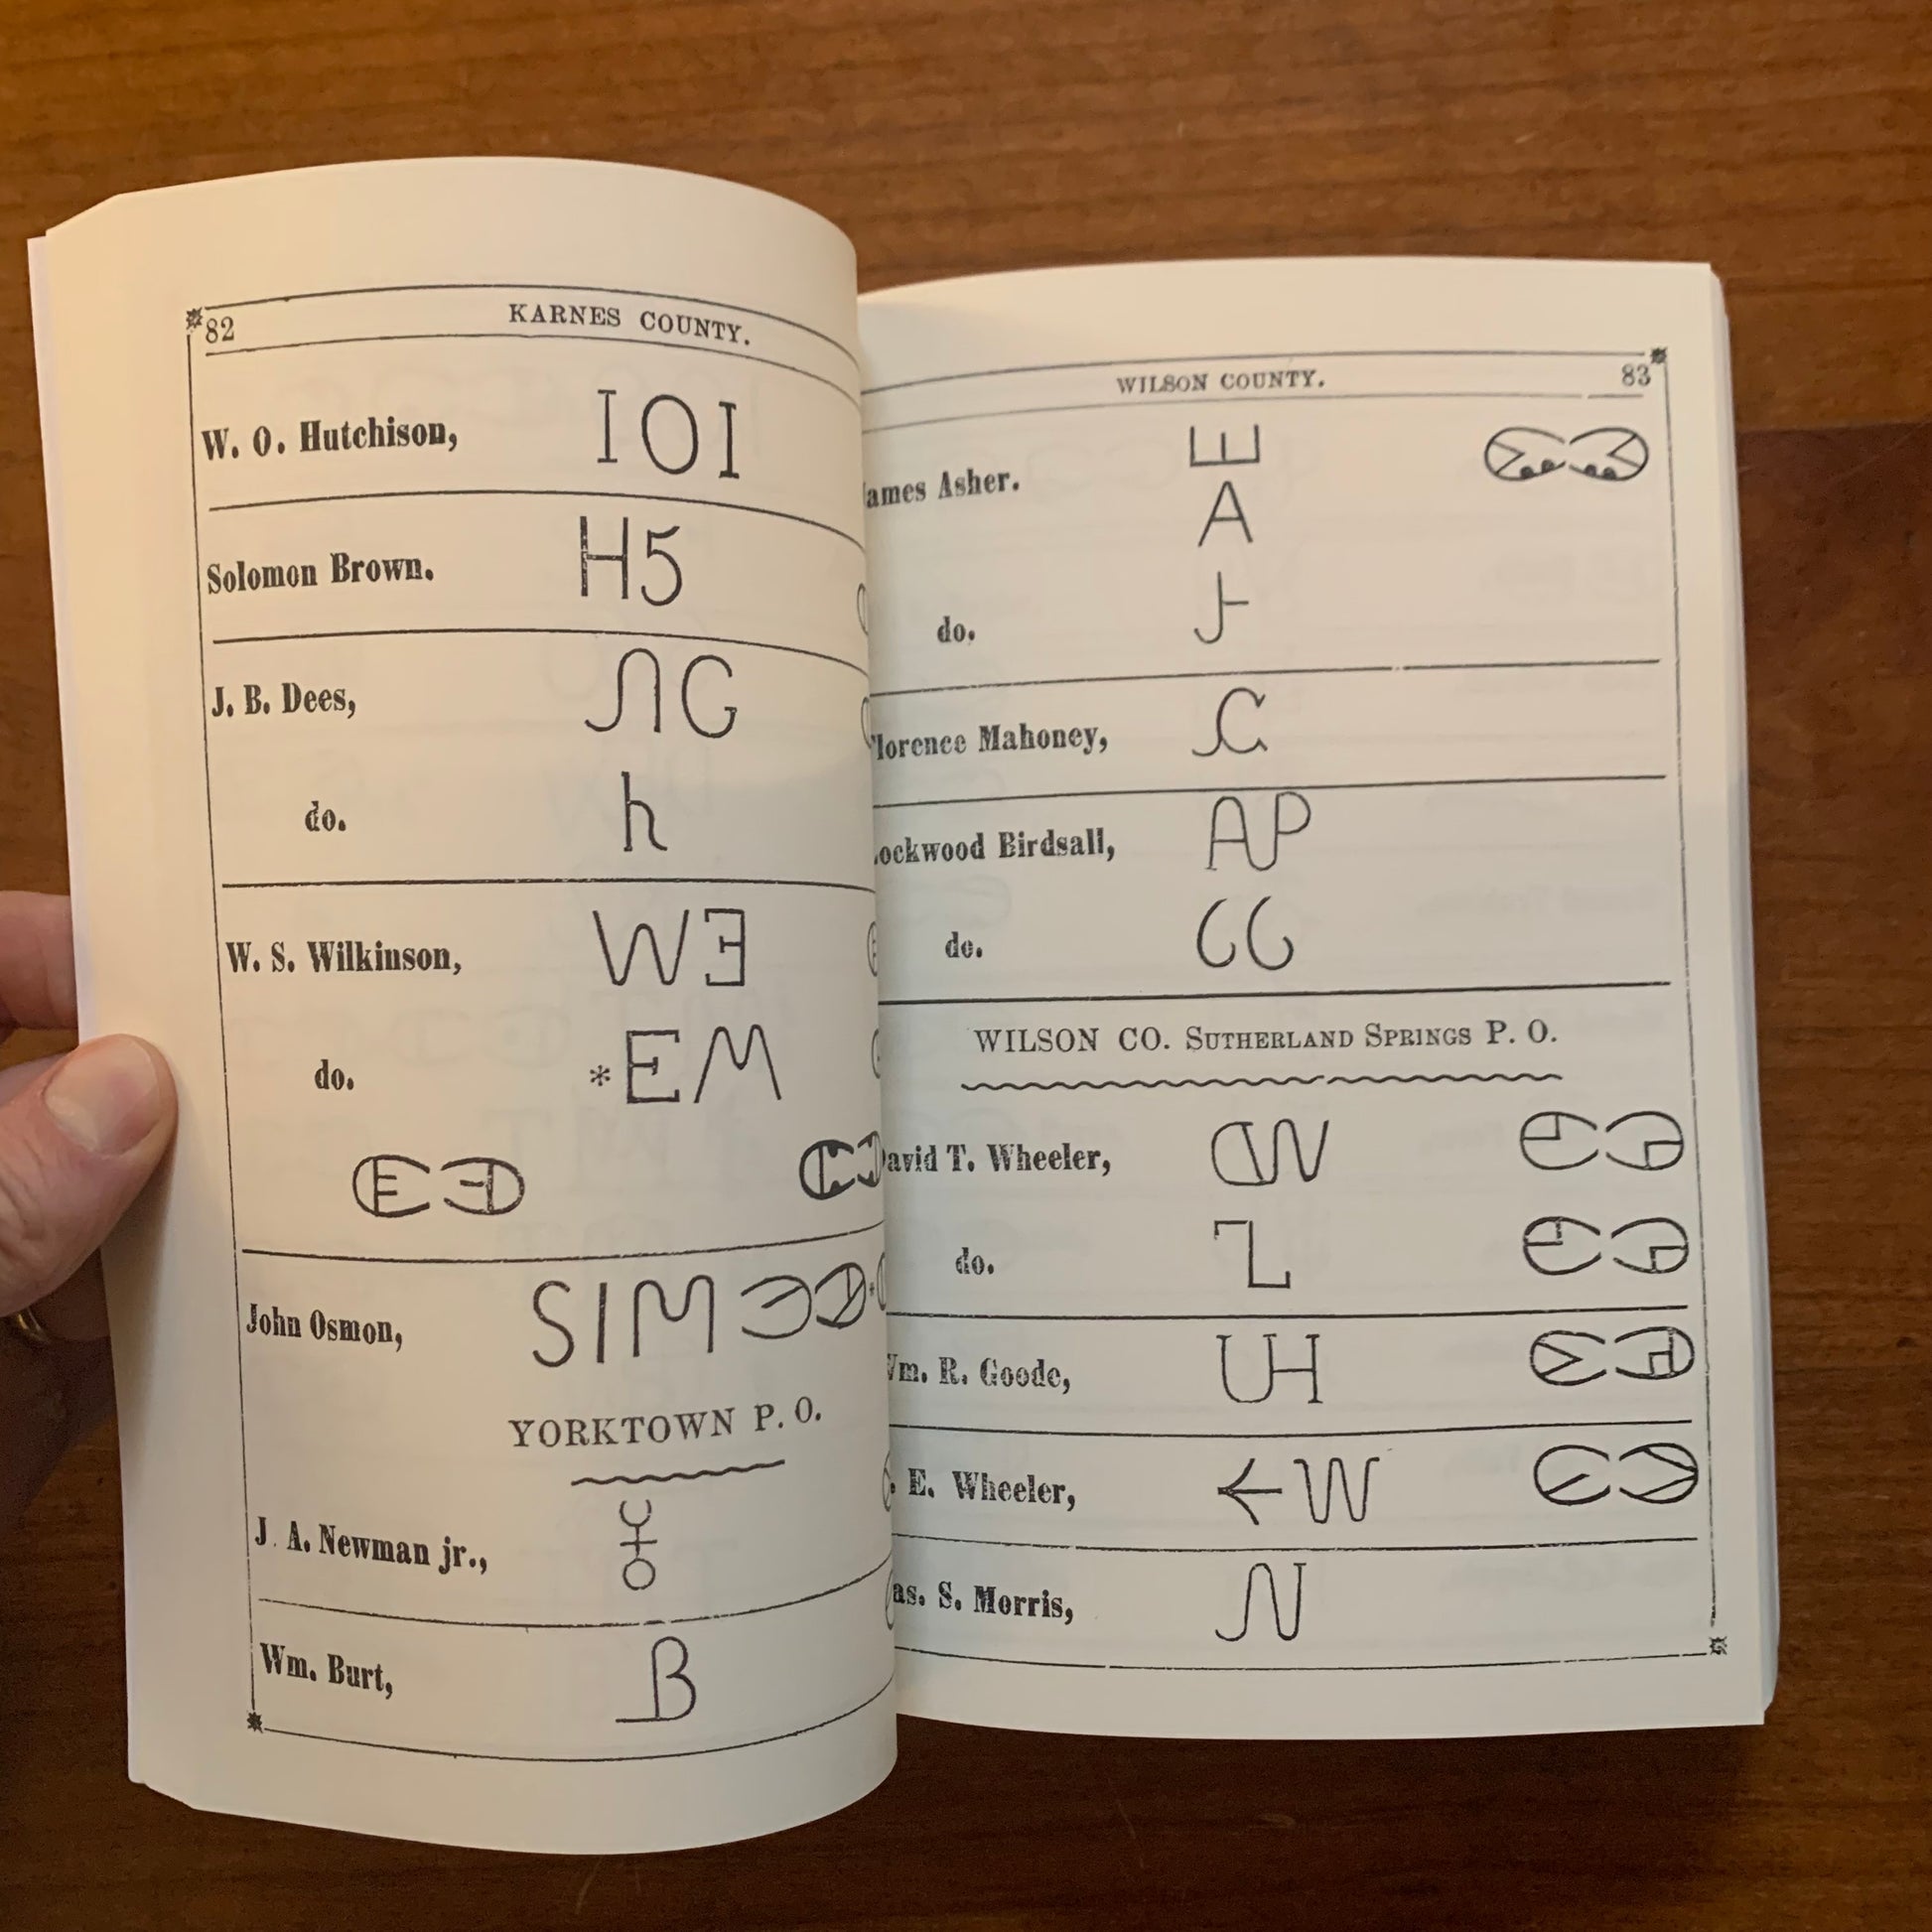 82 KARNES COUNTY.
W. O. Hutchison, IOI
Solomon Brown. H5
J. B. Dees, G
do. h
W. S. Wilkinson, WƎ
do. *EM
John Osmon, SIM
YORKTOWN P. O.
J. A. Newman jr.,
Wm. Burt, B
WILSON COUNTY. 83
Asher.
A
do.
Mahoney,
Birdsall, AP
do.
WILSON CO. SUTHERLAND SPRINGS P. O.
T. Wheeler,
do.
R. Goode, UH
E. Wheeler, W
S. Morris, N